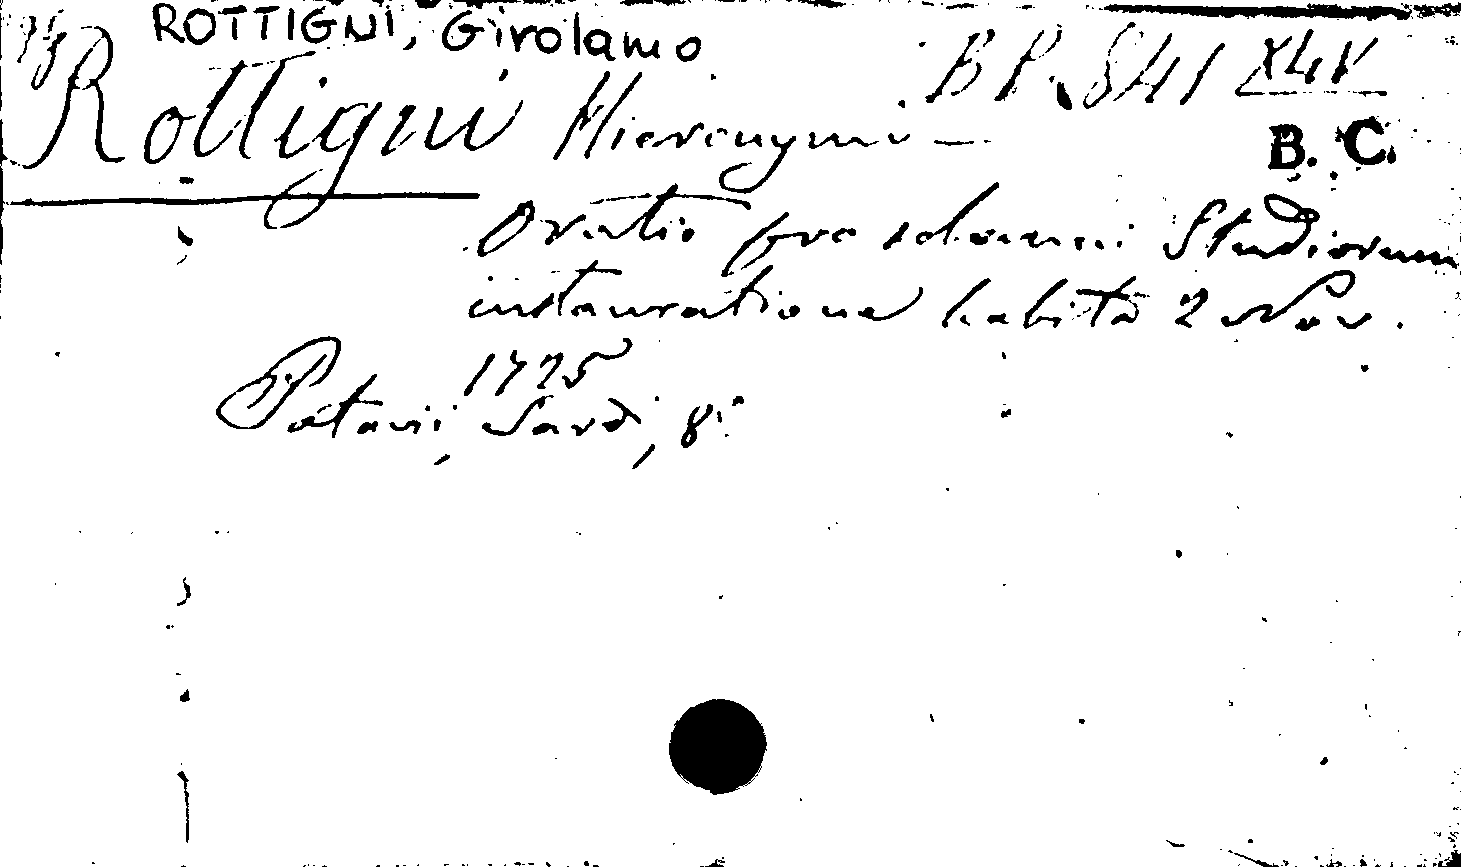 ROTTIGNI, Girolamo
Rottigni Hieronymi — B P. 841 XLIV
B. C.
Oratio pro solemni Studiorum
instauratione habita 2 Nov.
1725
Patavii, Sardi, 8°